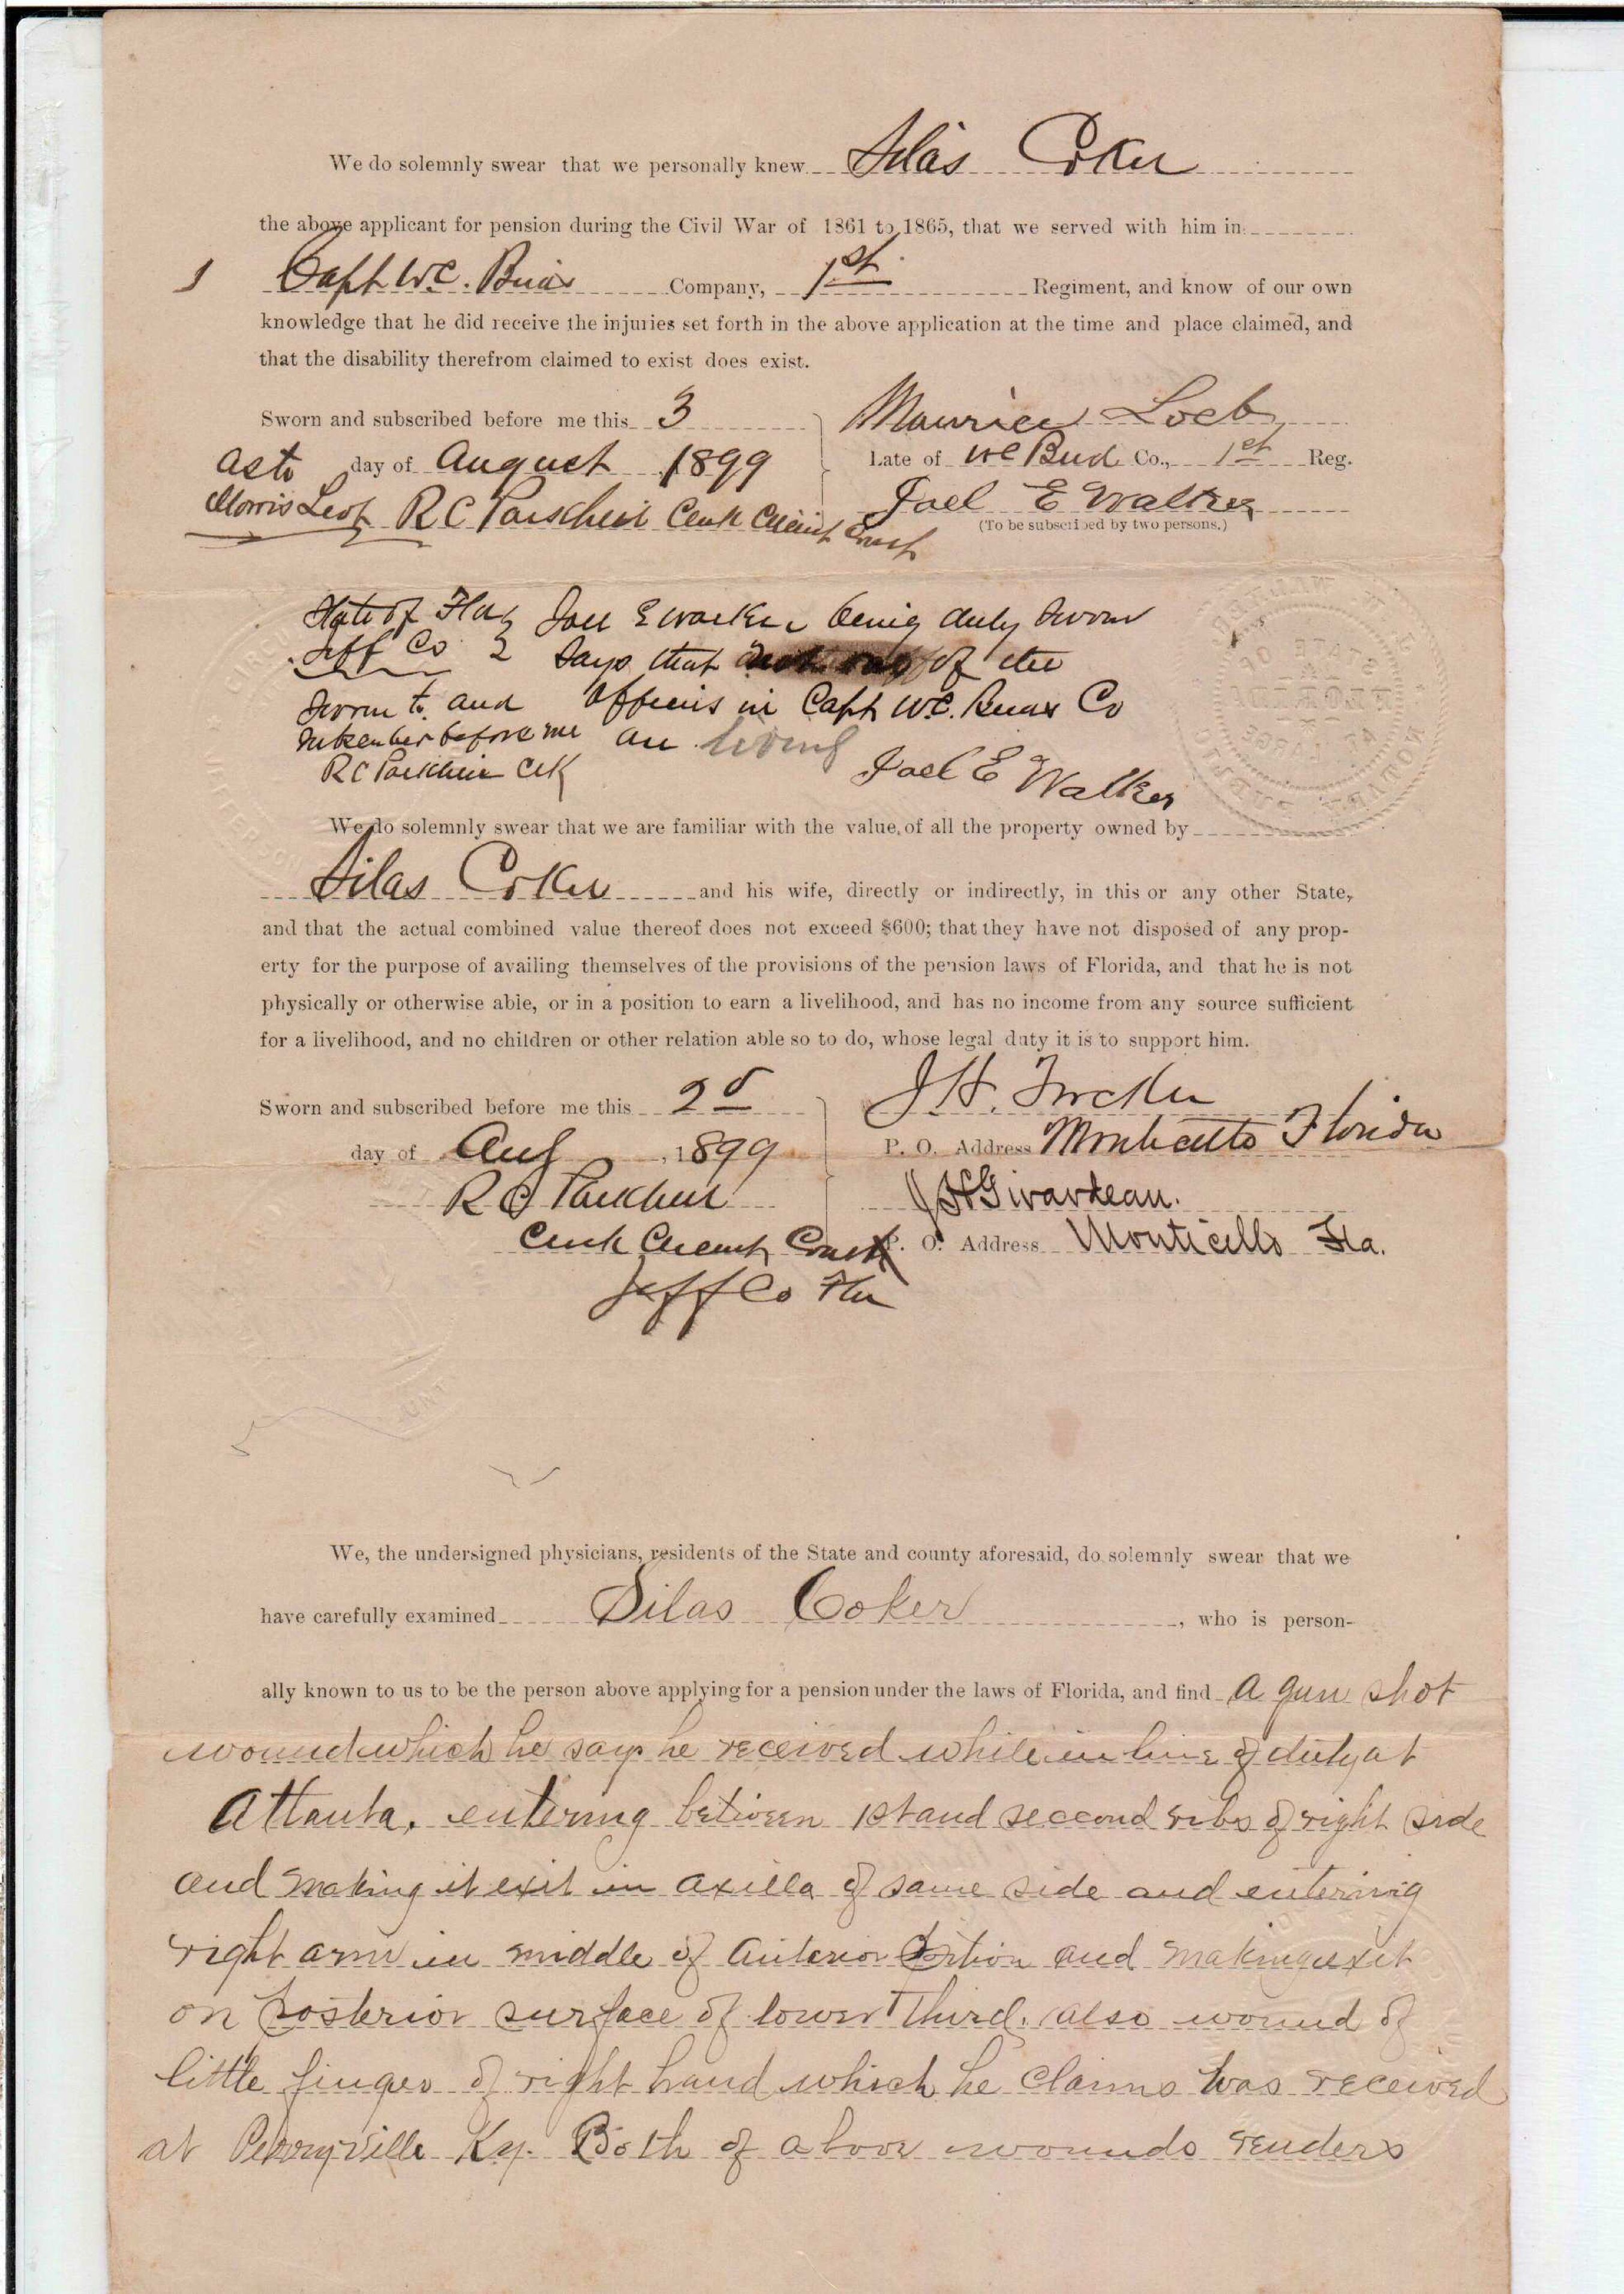 We do solemnly swear that we personally knew Silas Coker
the above applicant for pension during the Civil War of 1861 to 1865, that we served with him in
1 Capt W.C. Company, 1st Regiment, and know of our own
knowledge that he did receive the injuries set forth in the above application at the time and place claimed, and
that the disability therefrom claimed to exist does exist.
Sworn and subscribed before me this 3
Maurice Loeb
as to day of August 1899
Late of WC Bird Co., 1st Reg.
Morris R C Clerk Circuit Court
Joel E Walker
(To be subscribed by two persons.)
State of Fla Joel E Walker being duly sworn
Jeff Co says that of the
Sworn to and officers in Capt W.C. Co
before me are living
R C Clk
Joel E Walker
We do solemnly swear that we are familiar with the value, of all the property owned by
Silas Coker and his wife, directly or indirectly, in this or any other State,
and that the actual combined value thereof does not exceed $600; that they have not disposed of any prop-
erty for the purpose of availing themselves of the provisions of the pension laws of Florida, and that he is not
physically or otherwise able, or in a position to earn a livelihood, and has no income from any source sufficient
for a livelihood, and no children or other relation able so to do, whose legal duty it is to support him.
Sworn and subscribed before me this 2d
J.H.
day of Aug, 1899
P. O. Address Monticello Florida
R C
J H Girardeau.
Clerk Circuit Court
P. O. Address Monticello Fla.
Jeff Co Fla
We, the undersigned physicians, residents of the State and county aforesaid, do solemnly swear that we
have carefully examined Silas Coker, who is person-
ally known to us to be the person above applying for a pension under the laws of Florida, and find a gun shot
wound which he says he received while in line of duty at
Atlanta. entering between 1st and seccond ribs of right side
and making it exit in axilla of same side and entering
right arm in middle of anterior Portion and making exit
on Posterior surface of lower Third. also wound of
little finger of right hand which he claims was received
at Perryville Ky. Both of above wounds renders
NOTARY PUBLIC
STATE OF
FLORIDA
AT LARGE